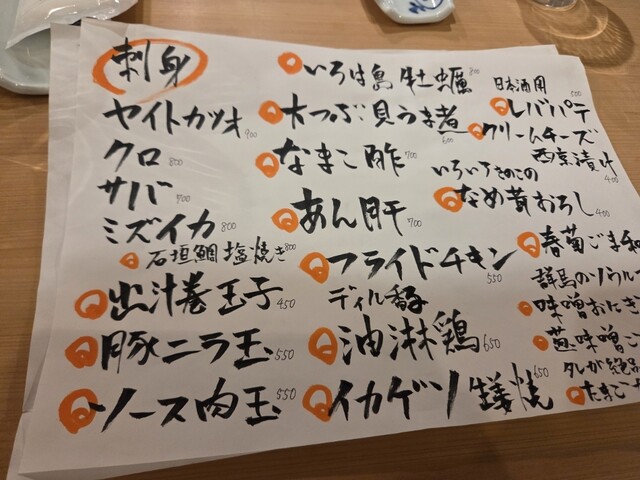 刺身
ヤイトカツオ 900
クロ 800
サバ 700
ミズイカ 800
石垣鯛塩焼き 800
出汁巻玉子 450
豚ニラ玉 550
ソース肉玉 550
いろは島牡蠣 800
大つぶ貝うま煮 600
なまこ酢 700
あん肝 700
フライドチキン 550
ディル香る
油淋鶏 650
イカゲソ生姜焼 650
日本酒用
レバパテ 500
クリームチーズ
西京漬け 400
いろいろきのこの
なめ茸おろし 400
春菊ごま和
群馬のソウル
味噌おにぎ
葱味噌ご
タレが絶品
たまご